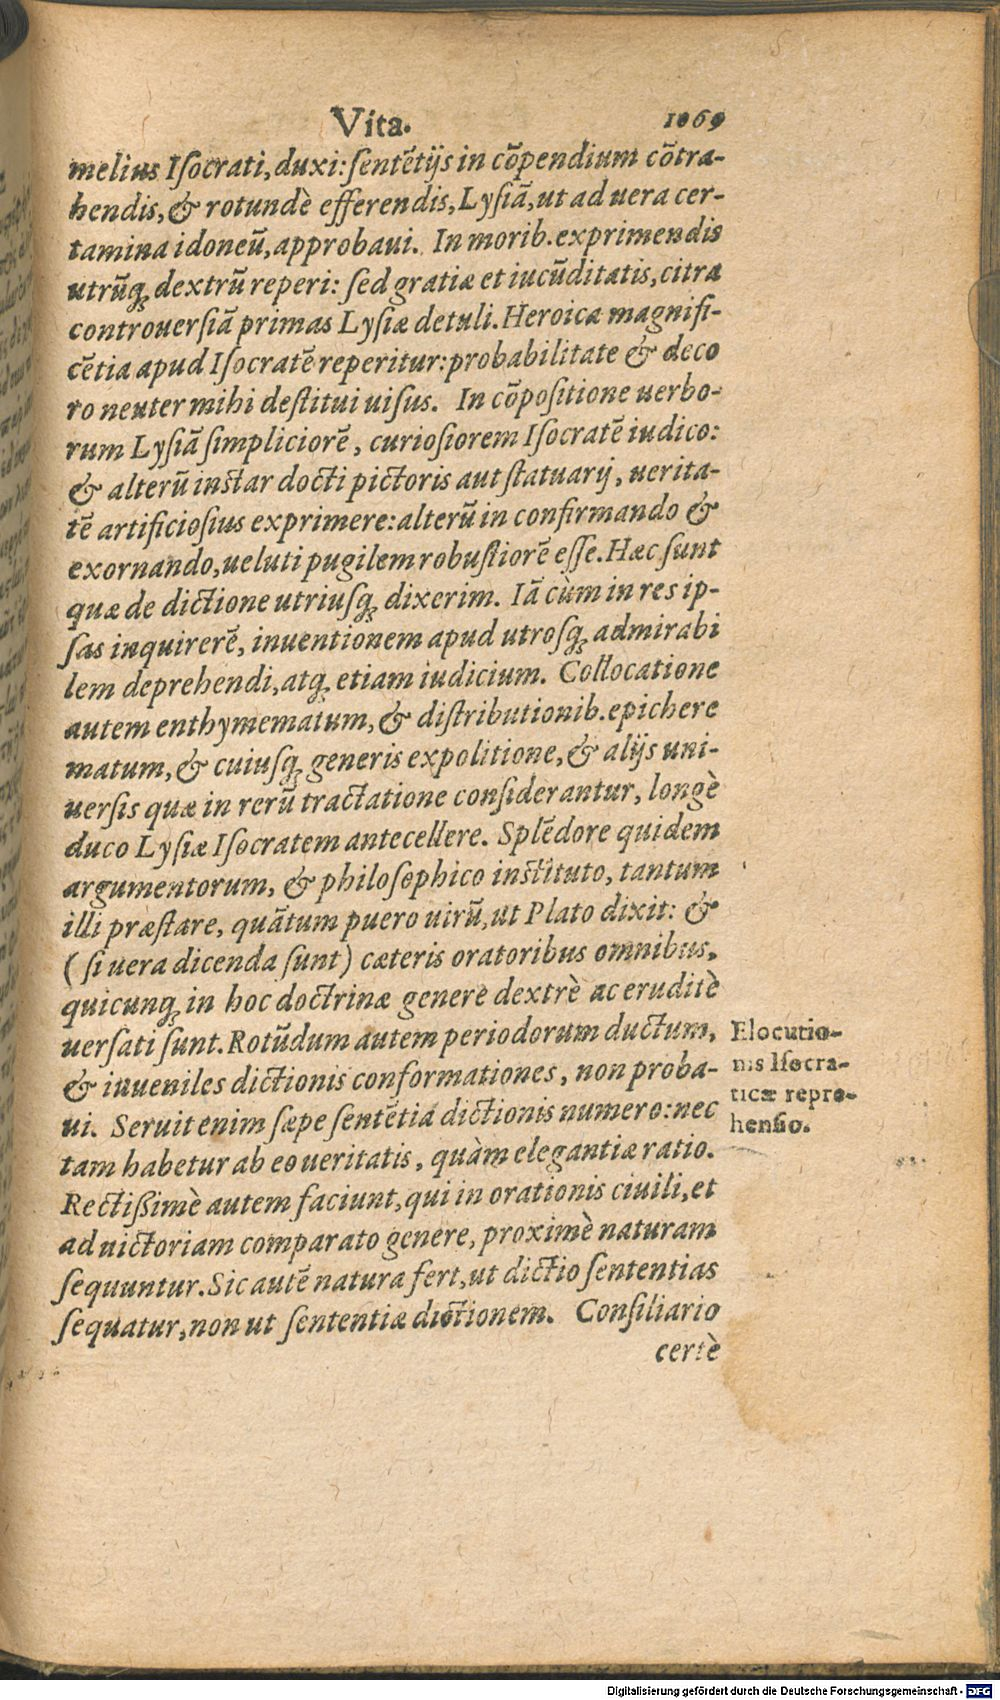 Vita. 1069
melius Iſocrati, duxi: ſentẽtijs in cõpendium cõtra-
hendis, & rotundè efferendis, Lyſiã, ut ad uera cer-
tamina idoneũ, approbaui. In morib. exprimendis
utrũq; dextrũ reperi: ſed gratiæ et iucũditatis, citra
controuerſiã primas Lyſiæ detuli. Heroica magnifi-
cẽtia apud Iſocratẽ reperitur: probabilitate & deco
ro neuter mihi deſtitui uiſus. In cõpoſitione uerbo-
rum Lyſiã ſimpliciorẽ, curioſiorem Iſocratẽ iudico:
& alterũ instar docti pictoris aut ſtatuarij, uerita-
tẽ artificioſius exprimere: alterũ in confirmando &
exornando, ueluti pugilem robuſtiorẽ eſſe. Hæc ſunt
quæ de dictione utriuſq; dixerim. Iã cùm in res ip-
ſas inquirerẽ, inuentionem apud utroſq; admirabi
lem deprehendi, atq; etiam iudicium. Collocatione
autem enthymematum, & diſtributionib. epichere
matum, & cuiuſq; generis expolitione, & alijs uni-
uerſis quæ in rerũ tractatione conſiderantur, longè
duco Lyſiæ Iſocratem antecellere. Splẽdore quidem
argumentorum, & philoſophico instituto, tantum
illi præſtare, quãtum puero uirũ, ut Plato dixit: &
(ſi uera dicenda ſunt) cæteris oratoribus omnibus,
quicunq; in hoc doctrinæ genere dextrè ac eruditè
uerſati ſunt. Rotũdum autem periodorum ductum,
& iuueniles dictionis conformationes, non proba-
ui. Seruit enim ſæpe ſentẽtia dictionis numero: nec
tam habetur ab eo ueritatis, quàm elegantiæ ratio.
Rectißimè autem faciunt, qui in orationis ciuili, et
ad uictoriam comparato genere, proximè naturam
ſequuntur. Sic autẽ natura fert, ut dictio ſententias
ſequatur, non ut ſententiæ dictionem. Conſiliario
certè
Elocutio-
nis Iſocra-
ticæ repre-
henſio.
Digitalisierung gefördert durch die Deutsche Forschungsgemeinschaft - DFG